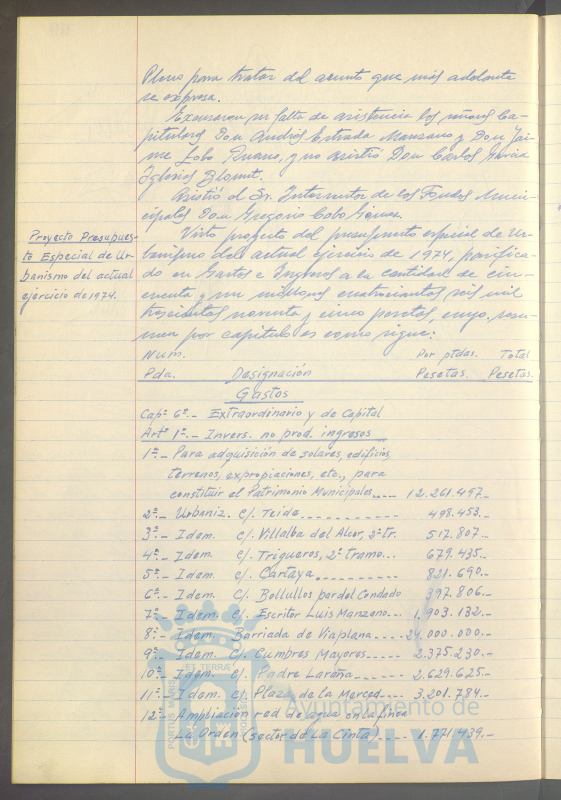 Pleno para tratar del asunto que más adelante
se expresa.
Excusaron su falta de asistencia los señores Ca-
pitulares Don Andrés Estrada Manzano y Don Jai-
me Lobo y no asistió Don Carlos García
Iglesias Blanit.
Asistió el Sr. Interventor de los Fondos Muni-
cipales Don Gregorio Cobo Gómez.
Proyecto Presupues-
to Especial de Ur-
banismo del actual
ejercicio de 1974.
Visto proyecto del presupuesto especial de Ur-
banismo del actual ejercicio de 1974, 
do en Gastos e Ingresos a la cantidad de cin-
cuenta y un millones cuatrocientas seis mil
trescientas noventa y cinco pesetas, cuyo resu-
men por capítulos es como sigue:
Núm. Por ptdas. Total
Pda. Designación Pesetas. Pesetas.
Gastos
Capº 6º.- Extraordinario y de Capital
Artº 1º.- Invers. no prod. ingresos
1º.- Para adquisición de solares, edificios,
terrenos, expropiaciones, etc., para
constituir el Patrimonio Municipales.... 12.261.497.-
2º.- Urbaniz. c/. Teide........... 498.453.-
3º.- Idem. c/. Villalba del Alcor, 2º tr. 517.807.-
4º.- Idem. c/. Trigueros, 2º tramo... 679.435.-
5º.- Idem. c/. Cartaya.......... 821.690.-
6º.- Idem. c/. Bollullos par del Condado 397.806.-
7º.- Idem. c/. Escritor Luis Manzano... 1.903.132.-
8º.- Idem. Barriada de Viaplana..... 24.000.000.-
9º.- Idem. c/. Cumbres Mayores..... 2.375.230.-
10º.- Idem. c/. Padre Laraña...... 2.629.625.-
11º.- Idem. c/. Plaza de la Merced.... 3.201.784.-
12º.- Ampliación red de agua en la finca
La Orden (sector de La Cinta).... 1.771.439.-
Ayuntamiento de
HUELVA
PORTUS MARIS
ET TERRÆ
CUSTODIA